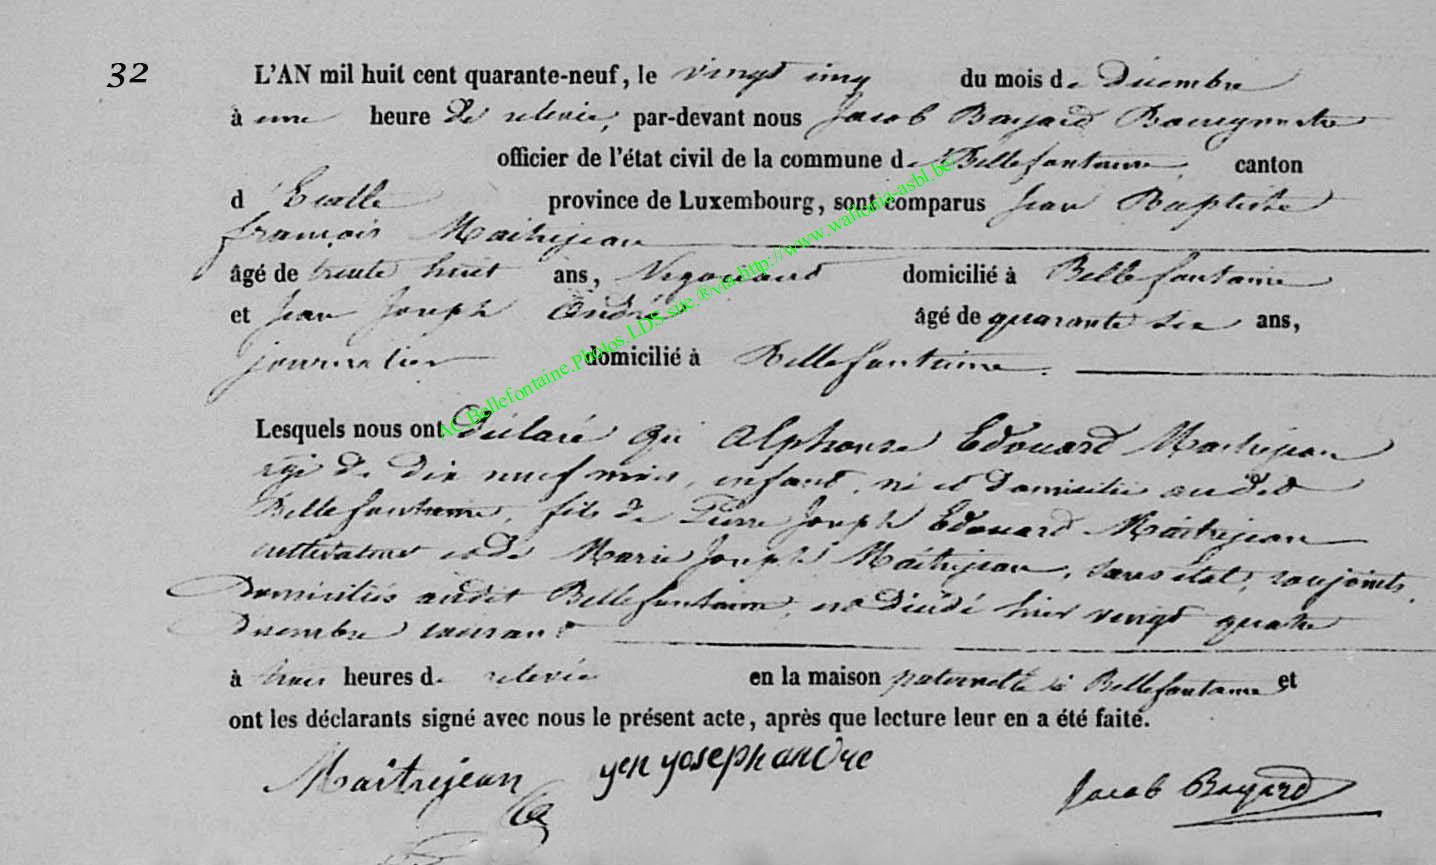 32
L'AN mil huit cent quarante-neuf, le vingt cinq du mois de Décembre
à une heure de relevée, par-devant nous Jacob Bayard Bourgmestre
officier de l'état civil de la commune de Bellefontaine, canton
d'Etalle province de Luxembourg, sont comparus Jean Baptiste
françois Maitrejean
âgé de trente huit ans, Négociant domicilié à Bellefontaine
et Jean Joseph André âgé de quarante six ans,
journalier domicilié à Bellefontaine.
Lesquels nous ont Déclaré que Alphonse Edouard Maitrejean
agé de dix neuf mois, enfant, né et domicilié audit
Bellefontaine, fils de Pierre Joseph Edouard Maitrejean
cultivateur et de Marie Joseph Maitrejean, sans état, conjoints,
Domiciliés audit Bellefontaine, est décédé hier vingt quatre
Décembre courant
à trois heures de relevée en la maison paternelle à Bellefontaine et
ont les déclarants signé avec nous le présent acte, après que lecture leur en a été faite.
Maitrejean yen yoseph andre Jacob Bayard
AC.Bellefontaine.Photos.LDS.site.®via-http://www.wallonia-asbl.be/